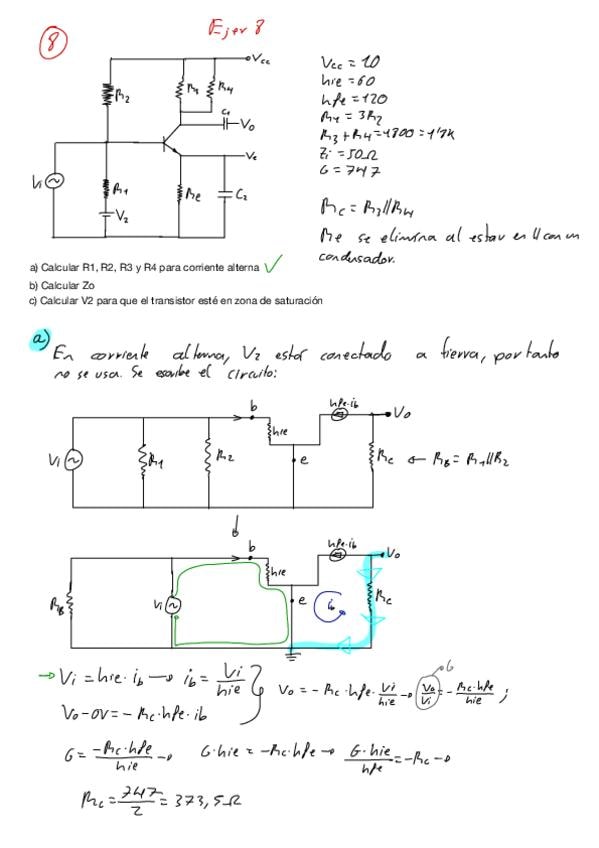 8
Ejer 8
Vcc
R2
R3
R4
C1
Vo
Ve
Vi
R1
V2
Re
C2
Vcc = 10
hie = 60
hfe = 120
R1 = 3R2
R3 + R4 = 1800 = 1'8K
Zi = 50Ω
G = 747
Rc = R3//R4
Re se elimina al estar en // con un
condensador.
a) Calcular R1, R2, R3 y R4 para corriente alterna ✓
b) Calcular Zo
c) Calcular V2 para que el transistor esté en zona de saturación
a)
En corriente alterna, V2 estar conectado a tierra, por tanto
no se usa. Se escribe el circuito:
Vi
R1
R2
b
hie
e
hfe·ib
Vo
Rc ← RB = R1//R2
RB
Vi
b
hie
e
hfe·ib
Vo
Rc
→ Vi = hie · ib → ib = Vi/hie
Vo - 0V = - Rc · hfe · ib
Vo = - Rc · hfe · Vi/hie → Vo/Vi = - Rc·hfe/hie ;
G
G = -Rc·hfe/hie → G·hie = -Rc·hfe → G·hie/hfe = -Rc →
Rc = 747/2 = 373,5Ω